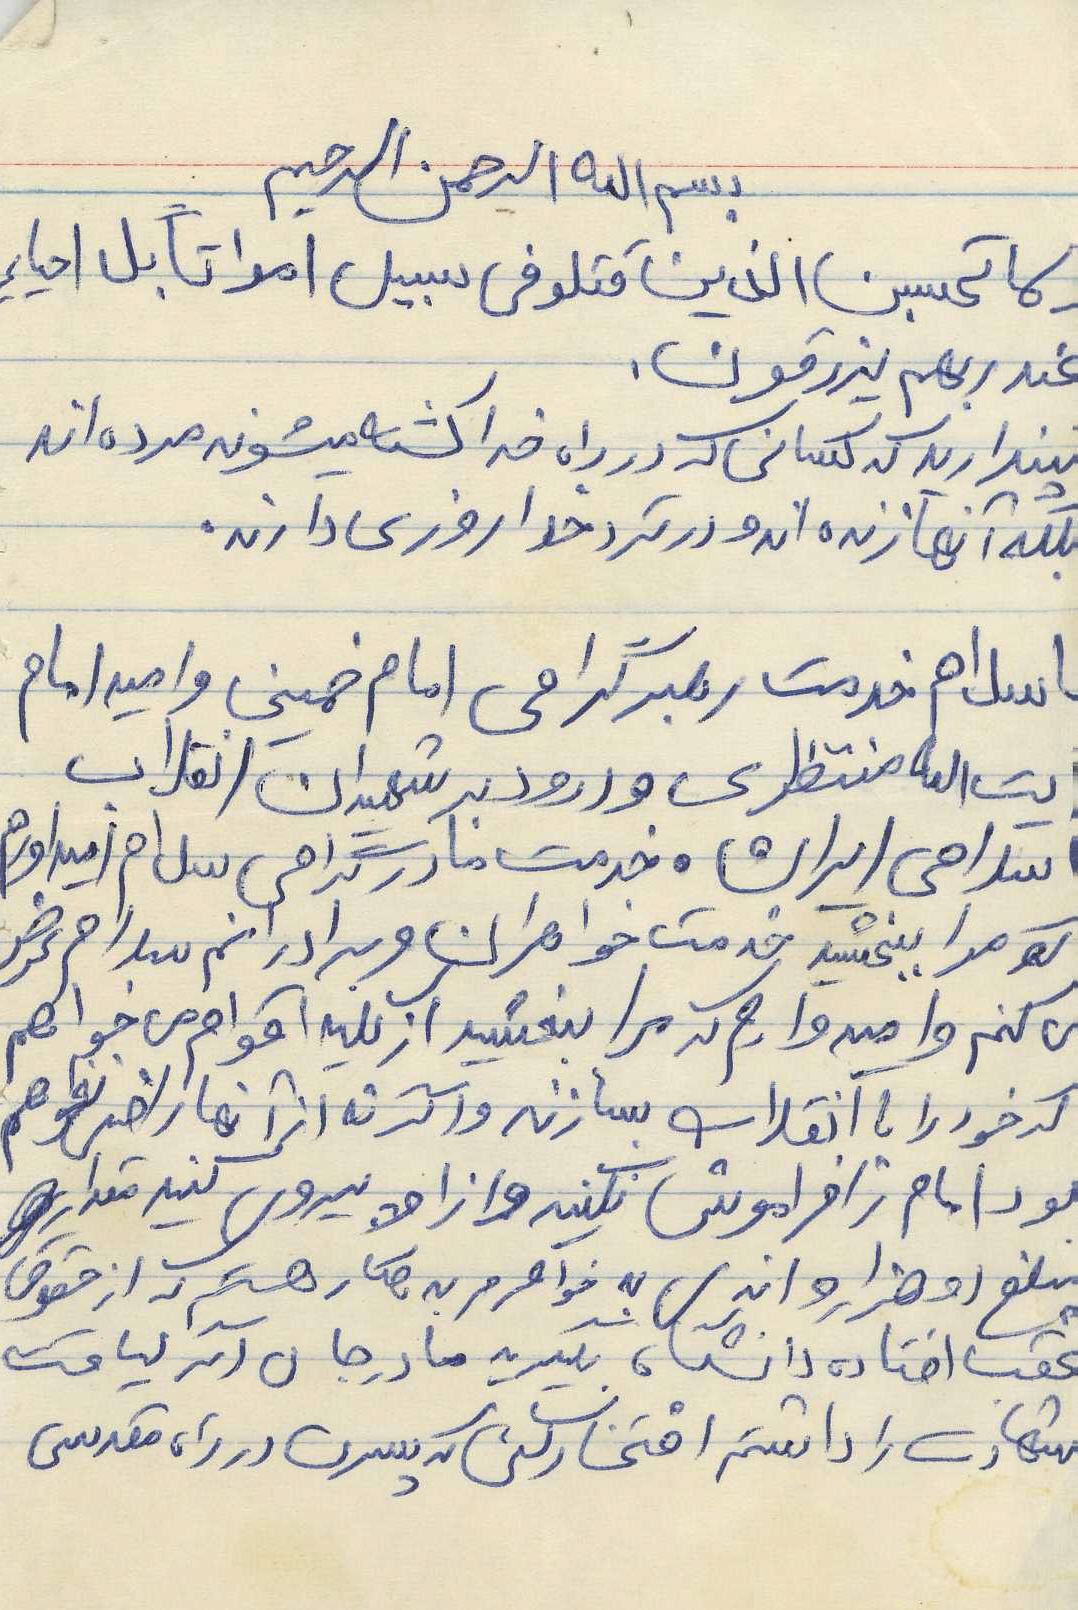 بسم الله الرحمن الرحیم
ولا تحسبن الذین قتلو فی سبیل امواتاً بل احیاء
عند ربهم یرزقون.
نپندارید که کسانی که در راه خدا کشته میشوند مرده اند
بلکه آنها زنده اند و در نزد خدا روزی دارند.
با سلام خدمت رهبر گرامی امام خمینی و امید امام
آیت الله منتظری و درود بر شهیدان انقلاب
اسلامی ایران خدمت مادر گرامی سلام امیدوارم
که مرا ببخشید خدمت خواهران و برادرانم سلام عرض
می کنم و امیدوارم که مرا ببخشید از کلیه اقوام می خواهم
که خود را با انقلاب بسازند و اگر نه از آنها راضی نخواهم
بود امام را فراموش نکنید و از او پیروی کنید مقدار
مبلغ هزار و اندی به خواهرم بدهکار هستم که از حقوق
عقب افتاده دانشگاه بگیرید مادر جان اگر لیاقت
شهادت را داشتم افتخار کنی که پسرت در راه مقدسی